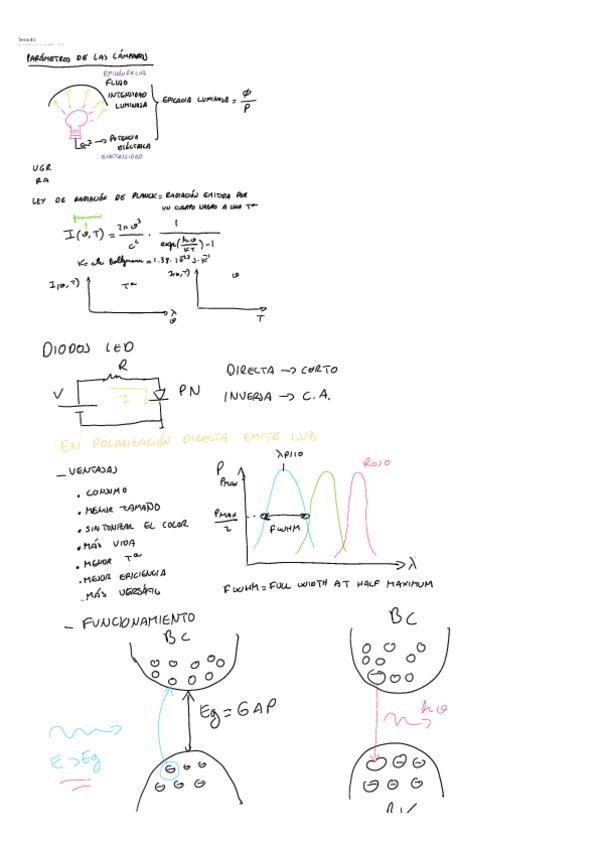 PARÁMETROS DE LAS LÁMPARAS
EMISIÓN DE LUZ
FLUJO
INTENSIDAD
LUMINOSA
EFICACIA LUMINOSA = Φ/P
POTENCIA
ELÉCTRICA
ELECTRICIDAD
UGR
RA
LEY DE RADIACIÓN DE PLANCK = RADIACIÓN EMITIDA POR
UN CUERPO NEGRO A UNA Tª
I(υ,T) = 2hυ³/c² · 1/(exp(hυ/KT)-1)
I(υ,T)
Tª
λ
υ
I(υ,T)
υ
T
DIODOS LED
R
V
I
PN
DIRECTA → CORTO
INVERSA → C.A.
EN POLARIZACIÓN DIRECTA EMITE LUZ
- VENTAJAS
• CONSUMO
• MENOR TAMAÑO
• SINTONIZAR EL COLOR
• MÁS VIDA
• MENOR Tª
• MEJOR EFICIENCIA
• MÁS VERSÁTIL
λPICO
ROJO
P
PMAX
PMAX/2
FWHM
λ
FWHM = FULL WIDTH AT HALF MAXIMUM
- FUNCIONAMIENTO
BC
Eg = GAP
E>Eg
BC
hυ